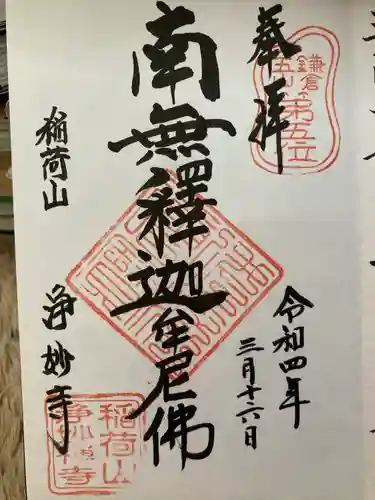 奉拝
鎌倉
五山第五位
南無釋迦牟尼佛
令和四年
三月十六日
稲荷山
浄妙寺
稲荷山
浄妙禅寺